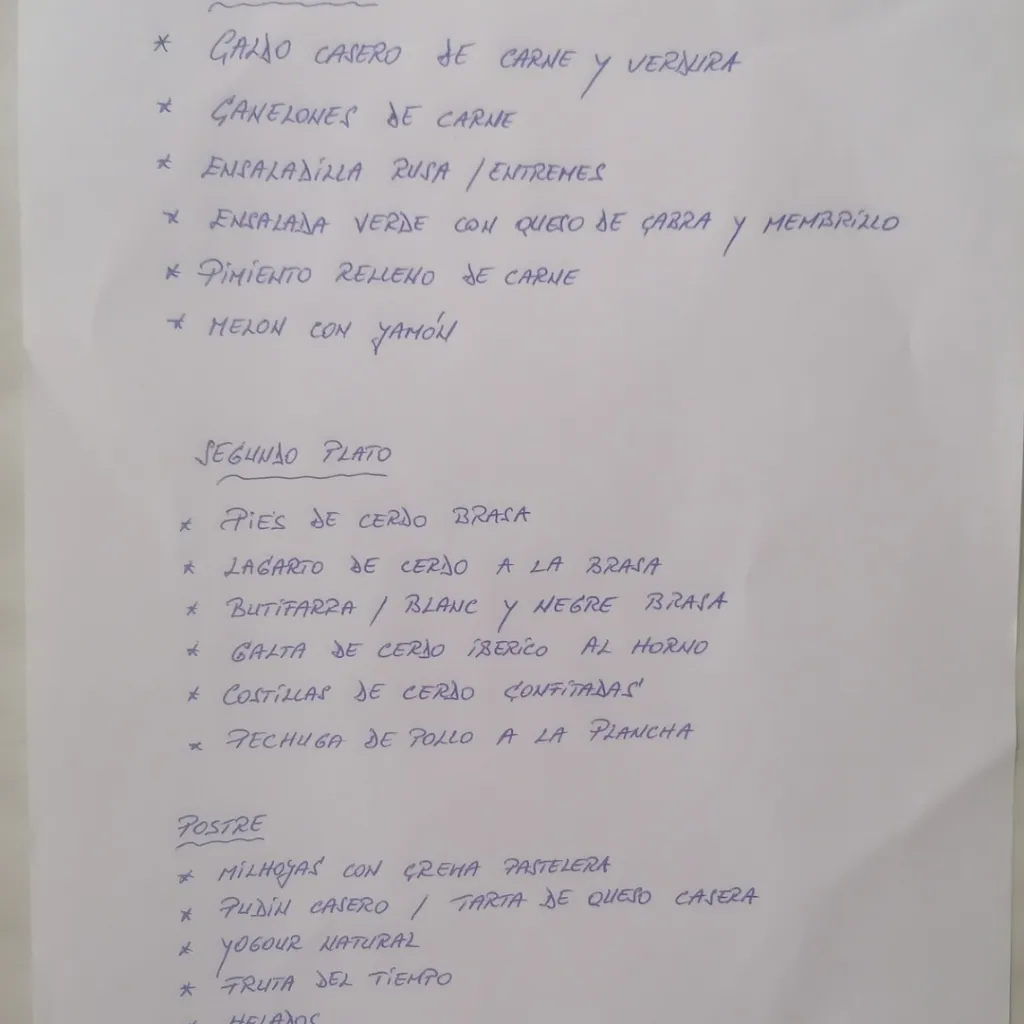 * CALDO CASERO DE CARNE Y VERDURA
* CANELONES DE CARNE
* ENSALADILLA RUSA / ENTREMES
* ENSALADA VERDE CON QUESO DE CABRA Y MEMBRILLO
* PIMIENTO RELLENO DE CARNE
* MELON CON YAMÓN
SEGUNDO PLATO
* PIES DE CERDO BRASA
* LAGARTO DE CERDO A LA BRASA
* BUTIFARRA / BLANC Y NEGRE BRASA
* GALTA DE CERDO IBERICO AL HORNO
* COSTILLAS DE CERDO CONFITADAS
* PECHUGA DE POLLO A LA PLANCHA
POSTRE
* MILHOYAS CON CREMA PASTELERA
* PUDIN CASERO / TARTA DE QUESO CASERA
* YOGOUR NATURAL
* FRUTA DEL TIEMPO
* HELADOS